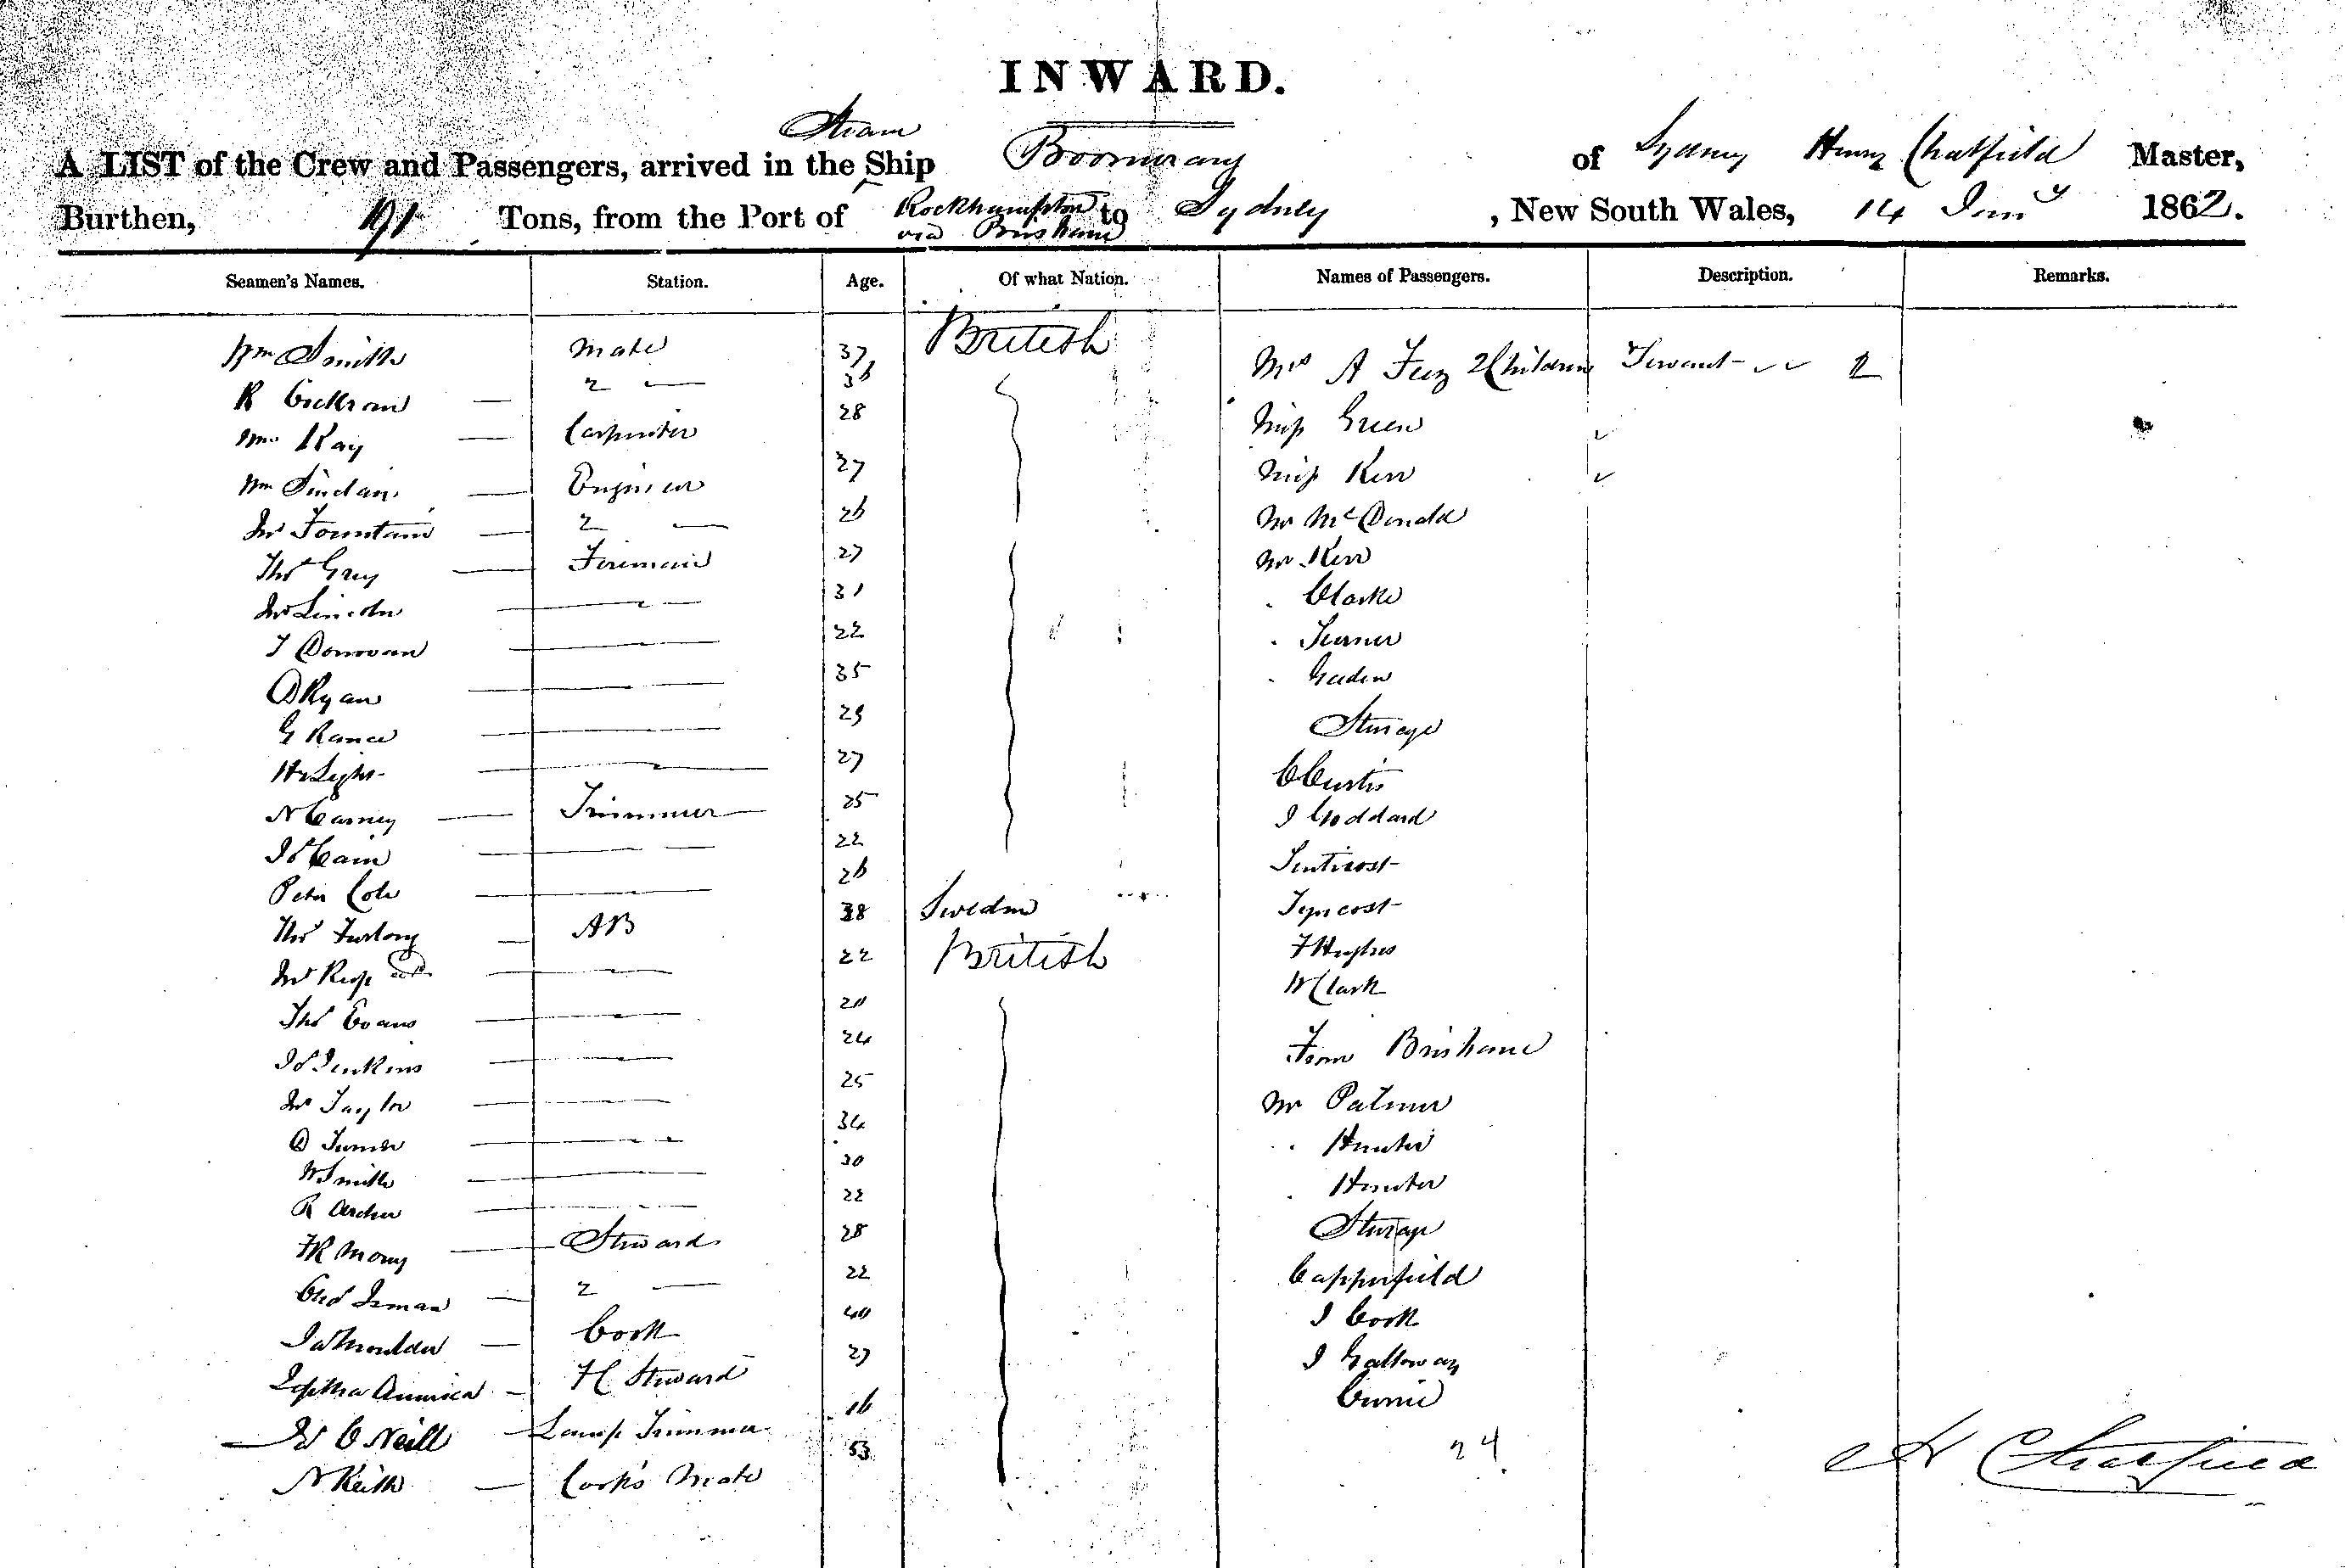 INWARD.
Steam
A LIST of the Crew and Passengers, arrived in the Ship Boomerang of Sydney Henry Chatfield Master,
Burthen, 191 Tons, from the Port of Rockhampton via Brisbane to Sydney, New South Wales, 14 Jany 1862.
Seamen's Names. Station. Age. Of what Nation. Names of Passengers. Description. Remarks.
Wm Smith Mate 37 British Mrs A Feez 2 Children Servant
R Cockran 2 — 36 Miss Green
Kay Carpenter 28 Miss Kerr
Wm Sinclair Engineer 27 Mr McDonald
Jno Fountain 2 — 26 Mr Kerr
Thos Grey Fireman 27 Clarke
Jno Lincoln 31 Turner
J Donovan 22 Gaden
D Ryan 35 Steerage
G Rance 29 C Curtis
Hy Light 27 J Goddard
N Carney Trimmer 25
Js Cain 22
Peter Cole 26 F Hughes
Thos Furlong AB 38 Sweden W Clark
Jno 22 British From Brisbane
Thos Evans 20 Mr Palmer
Js Jenkins 24 Hunter
Jno Taylor 25 Hunter
D Turner 34 Steerage
W Smith 30 Capperfield
R Archer 22 J Cook
FR Steward 28 J Galloway
Chs Inman 2 — 22 Currie
Jas Moulder Cook 40 24
America H Steward 27
Js O Neill Lamp Trimmer 16
N Keith Cook's Mate 53
H Chatfield